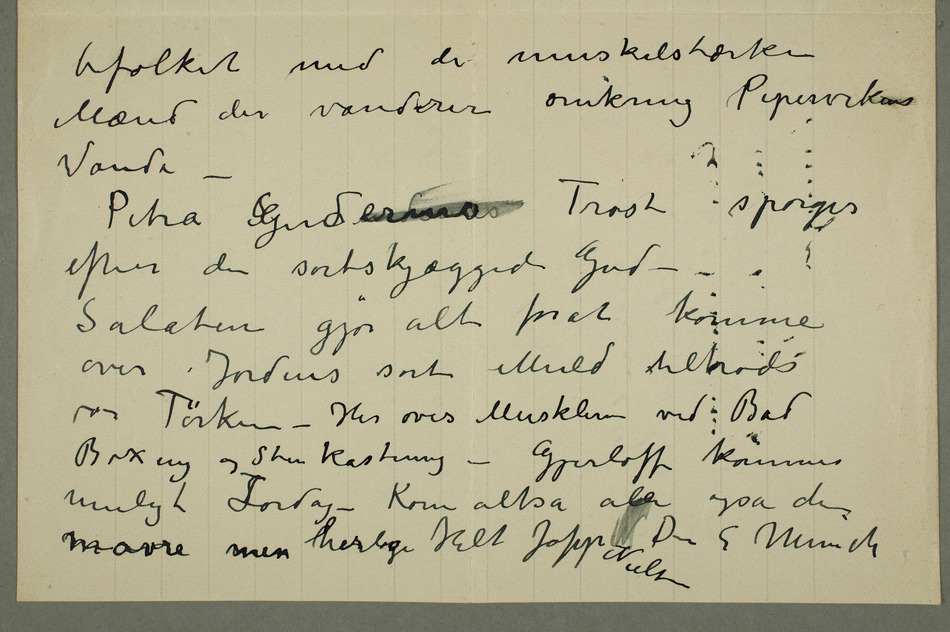 befolket med de muskelstærke
Mænd der vandrer omkring Pipervikens
Vande –
Petra Trøst spørges
efter den sortskjæggede Gud –
Salaten gjör alt forat komme
over Jordens sort Muld tiltrods
for Törken – Her øves Musklene ved Bad
Boxing og Stenkastning – Gjerløff kommer
muligt Lördag – Kom altsa alle ogsa den
mavre men herlige Helt Jappe Nilssen Din E Munch